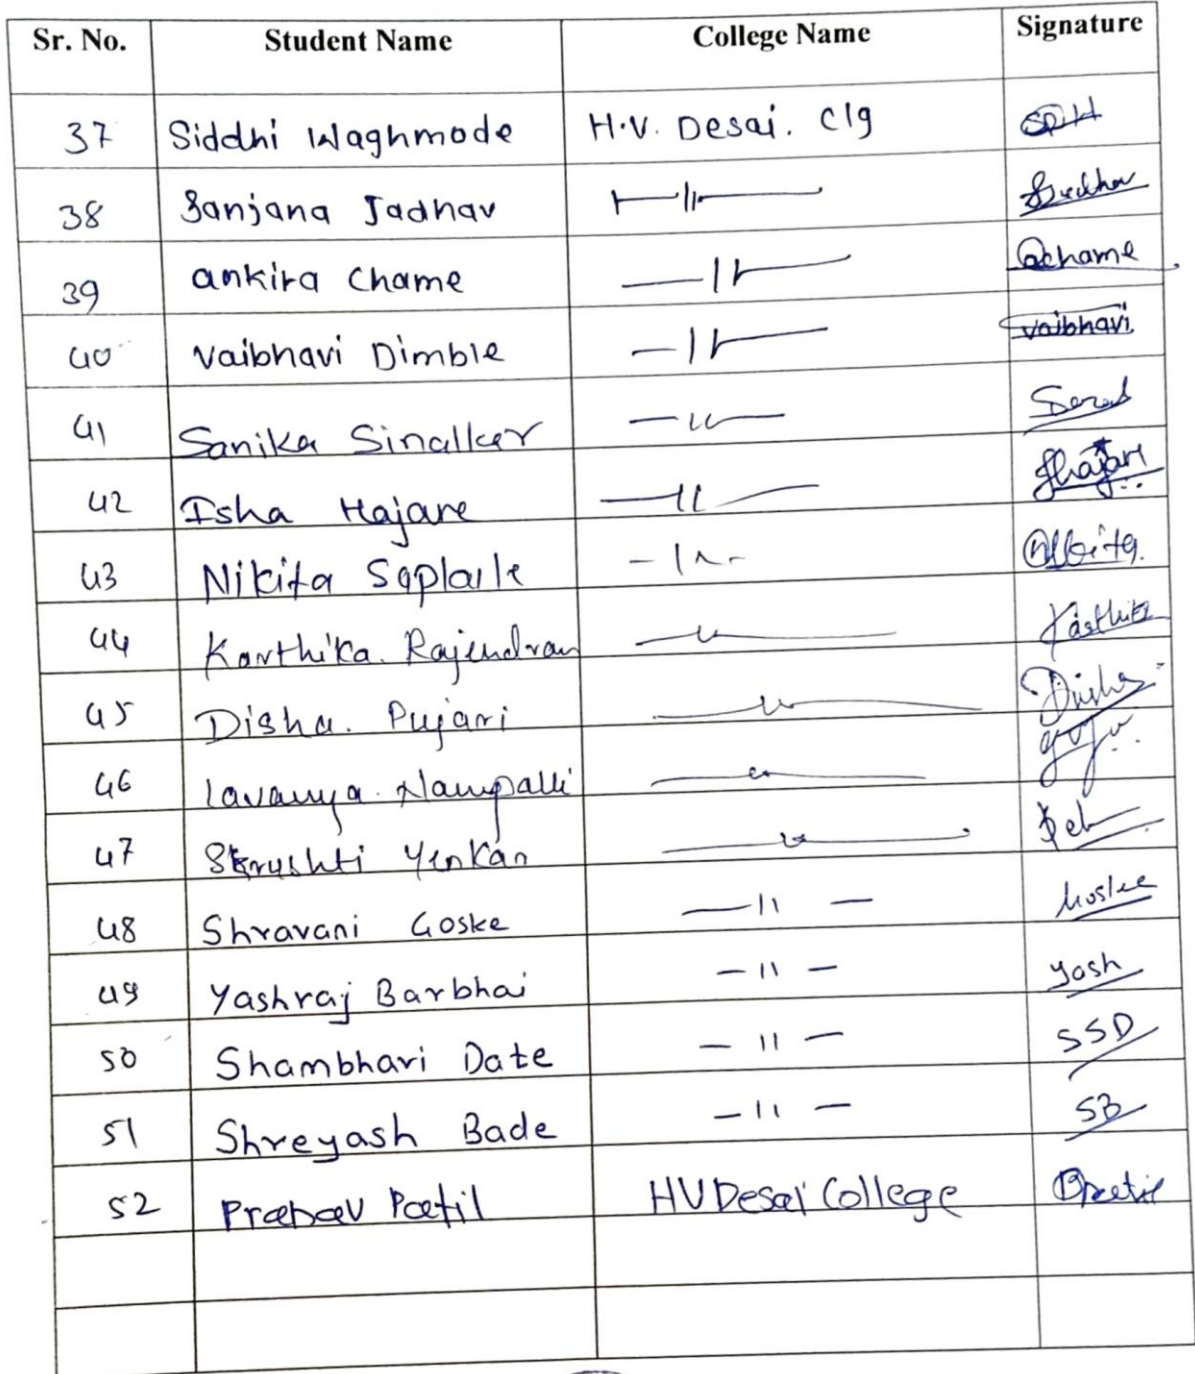 Sr. No. Student Name College Name Signature
37 Siddhi Waghmode H.V. Desai. Clg
38 Sanjana Jadhav —11—
39 ankita Chame —11— Achame
40 Vaibhavi Dimble —11— Vaibhavi
41 Sanika Sinalkar —11—
42 Isha Hajare —11—
43 Nikita —11—
44 Karthika. Rajendran —11— Karthika
45 Disha. Pujari —11— Disha
46 Lavanya. Nampalli —11—
47 Yenkan —11—
48 Shravani Goske —11—
49 Yashraj Barbhai —11— Yash
50 Shambhavi Date —11— SSD
51 Shreyash Bade —11— SB
52 Pranav Patil HV Desai College